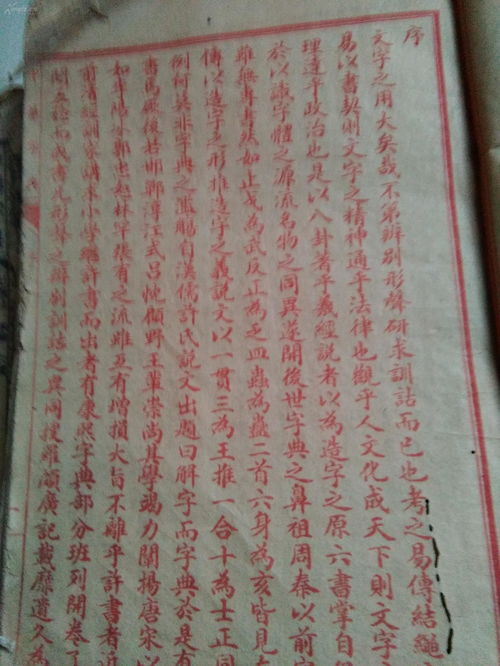 序
文字之用大矣哉不第辨别形聲研求訓詁而已也考之易傳結繩
易以書契則文字之精神通乎法律也觀乎人文化成天下則文字
理達乎政治也是以八卦著乎羲經說者以為造字之原六書掌自
於以識字體之源流名物之同異遂開後世字典之鼻祖周秦以前字
雖無專書然如止戈為武反正為乏皿蟲為蠱二首六身為亥皆見
傳以造字之形推造字之義說文以一貫三為王推一合十為士正同
例何莫非字典之濫觴自漢儒許氏說文出題曰解字而字典於是有
書焉厥後若邯鄲淳江式呂忱顧野王輩崇尚其學竭力闡揚唐宋以
如李陽冰郭忠恕林罕張有之流雖互有增損大旨不離乎許書者近
前清經訓家講求小學繼許書而出者有康熙字典部分班列開卷了
閱五稔而成書凡形聲之辨别訓詁之異同搜羅頗廣記載靡遺久為